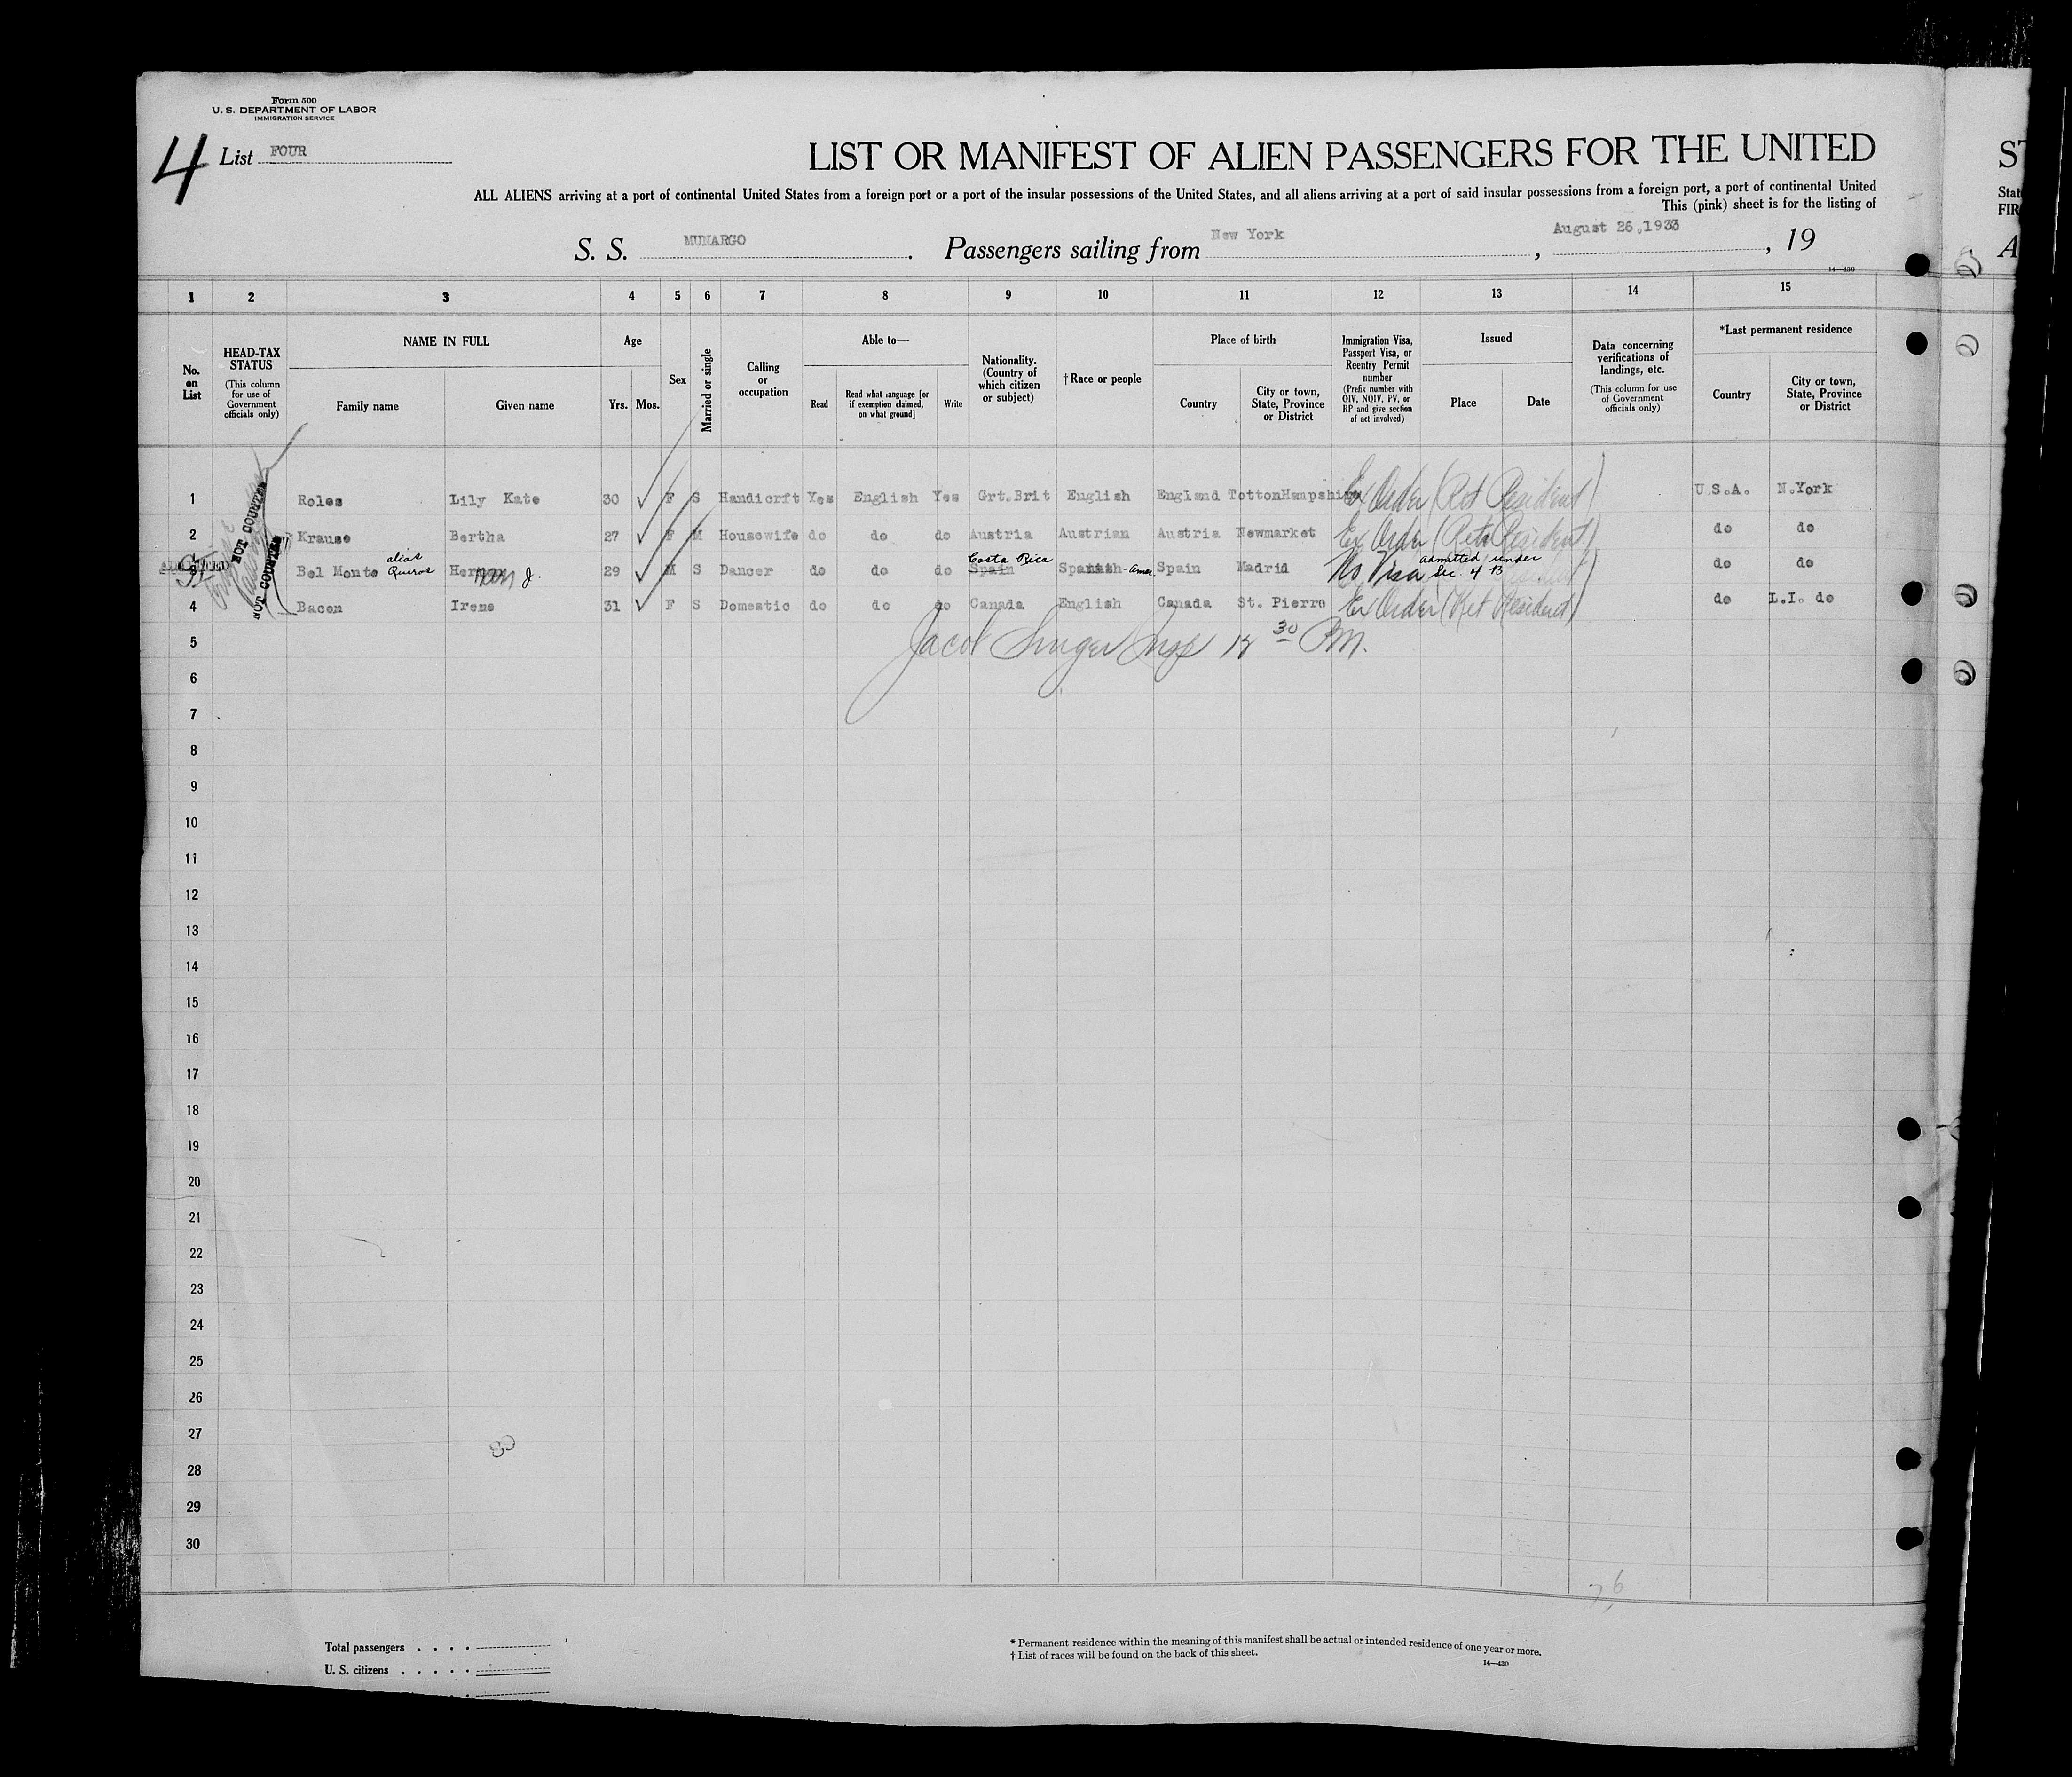 Form 500
U. S. DEPARTMENT OF LABOR
IMMIGRATION SERVICE
4 List FOUR
LIST OR MANIFEST OF ALIEN PASSENGERS FOR THE UNITED
ST
ALL ALIENS arriving at a port of continental United States from a foreign port or a port of the insular possessions of the United States, and all aliens arriving at a port of said insular possessions from a foreign port, a port of continental United
Stat
This (pink) sheet is for the listing of
FIR
S. S. MUNARGO. Passengers sailing from New York, August 26,1933, 19
A
14—430
1 2 3 4 5 6 7 8 9 10 11 12 13 14 15
No. on List
HEAD-TAX STATUS
(This column for use of Government officials only)
NAME IN FULL
Family name
Given name
Age
Yrs. Mos.
Sex
Married or single
Calling or occupation
Able to—
Read
Read what language [or if exemption claimed, on what ground]
Write
Nationality. (Country of which citizen or subject)
†Race or people
Place of birth
Country
City or town, State, Province or District
Immigration Visa, Passport Visa, or Reentry Permit number
(Prefix number with QIV, NQIV, PV, or RP and give section of act involved)
Issued
Place
Date
Data concerning verifications of landings, etc.
(This column for use of Government officials only)
*Last permanent residence
Country
City or town, State, Province or District
NOT COUNTED
NOT COUNTED
1 Roles Lily Kate 30 ✓ F S Handicrft Yes English Yes Grt.Brit English England TottonHampshire Ex Order (Ret Resident) U.S.A. N.York
2 Krause Bertha 27 ✓ F M Housewife do do do Austria Austrian Austria Newmarket Ex Order (Ret Resident) do do
ADMITTED
3 Bel Monte alias Quiros Herman J. 29 ✓ M S Dancer do do do Spain Costa Rica Spanish-Amer. Spain Madrid No Visa admitted under Sec. 4 B do do
4 Bacon Irene 31 ✓ F S Domestic do do do Canada English Canada St. Pierre Ex Order (Ret Resident) do L.I. do
5 Jacob Singer Insp 12 30 PM.
6
7
8
9
10
11
12
13
14
15
16
17
18
19
20
21
22
23
24
25
26
27
28
29
30
76
Total passengers . . . .
U. S. citizens . . . . .
* Permanent residence within the meaning of this manifest shall be actual or intended residence of one year or more.
† List of races will be found on the back of this sheet.
14—430